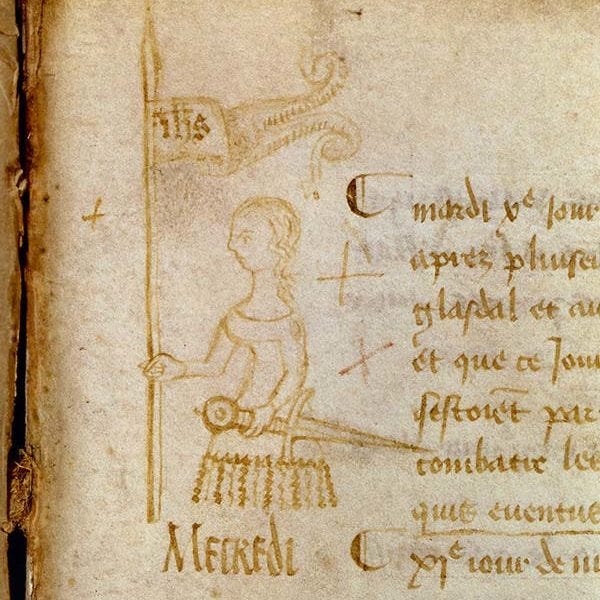 ihs
mardi xᵉ jour
aprez pluiseu
glasdal et au
et que ce Jour
sestoiēt par
combatre les
quis euentue
MeCReDi
xjᵉ iour de m